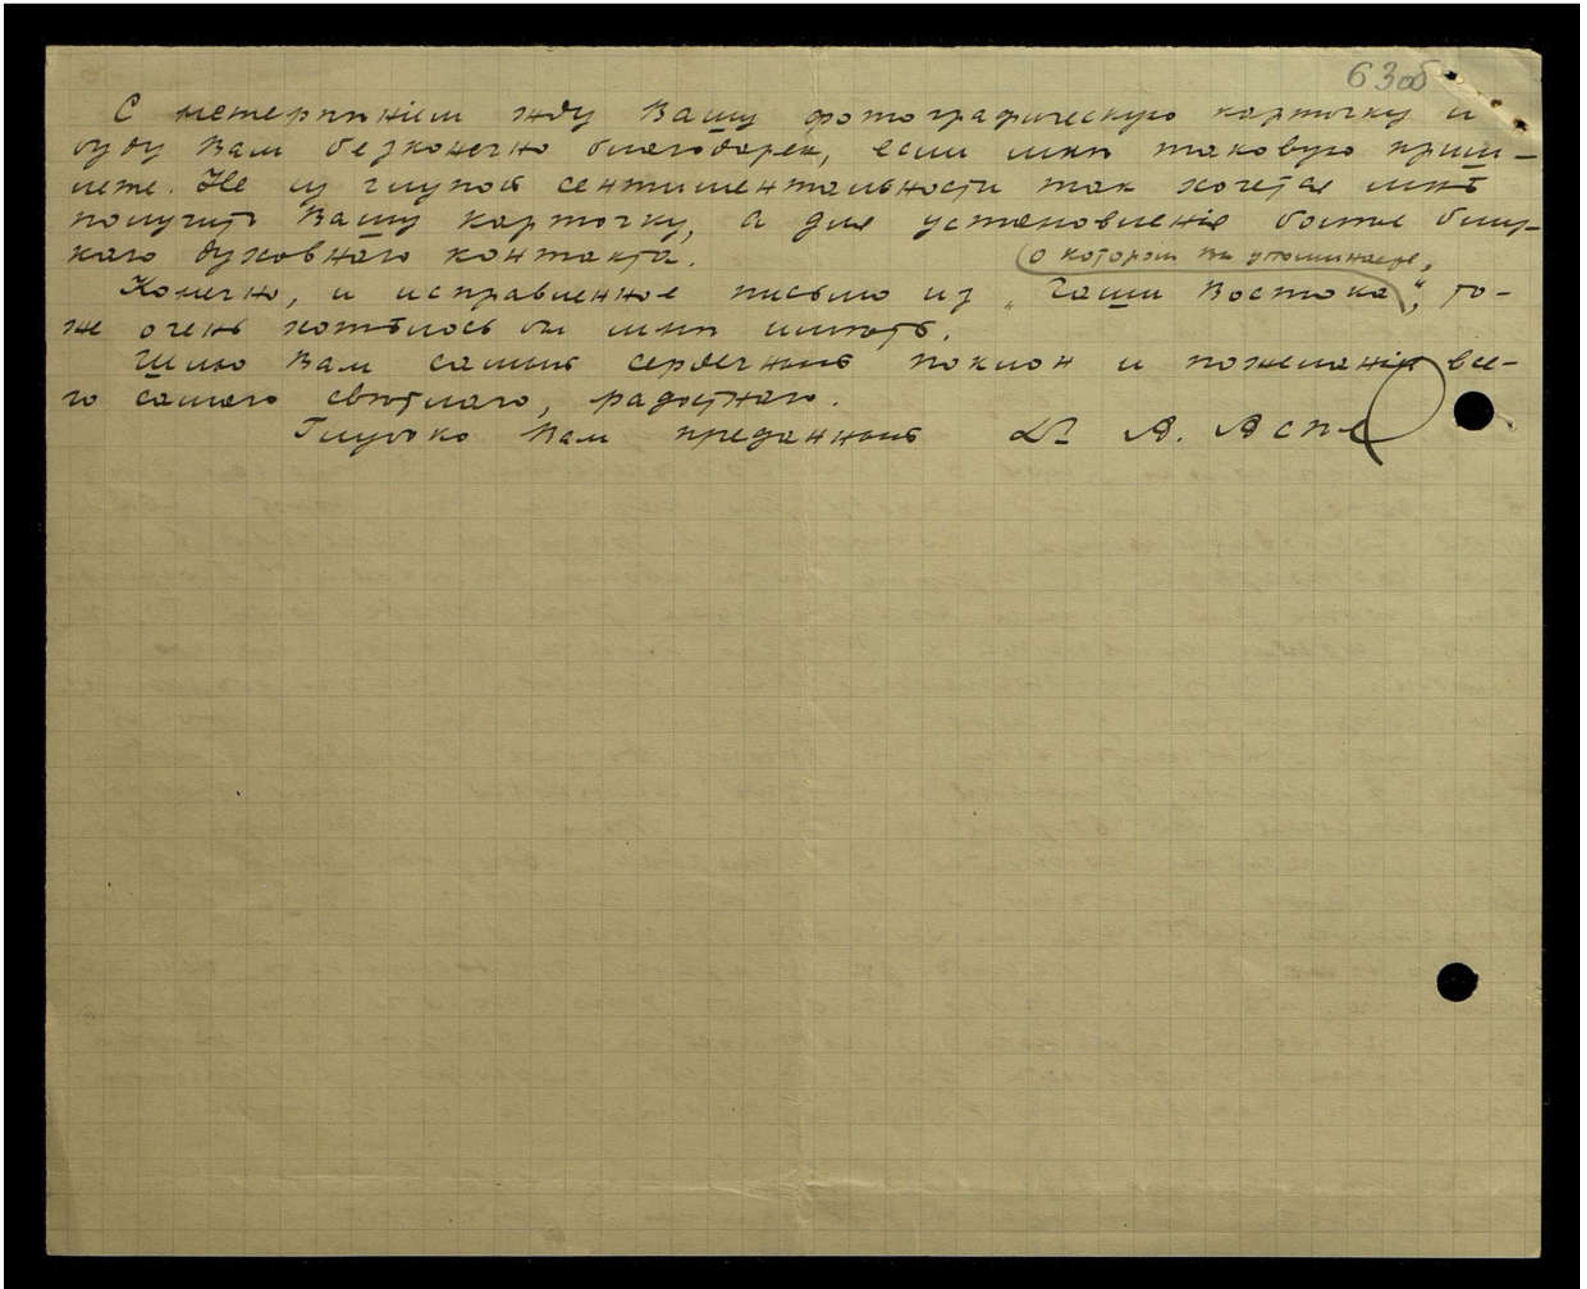 63об
С нетерпѣніем жду Вашу фотографическую карточку и
буду Вам безконечно благодарен, если мнѣ таковую приш-
лете. Не из глупой сентиментальности так хочется мнѣ
получить Вашу карточку, а для установленія болѣе близ-
каго духовнаго контакта.
о котором Вы упоминаете,
Конечно, и исправленное письмо из „Чаши Востока“, то-
же очень хотѣлось бы мнѣ имѣть.
Шлю Вам самый сердечный поклон и пожеланія все-
го самаго свѣтлаго, радостнаго.
Глубоко Вам преданный Др А. Асп